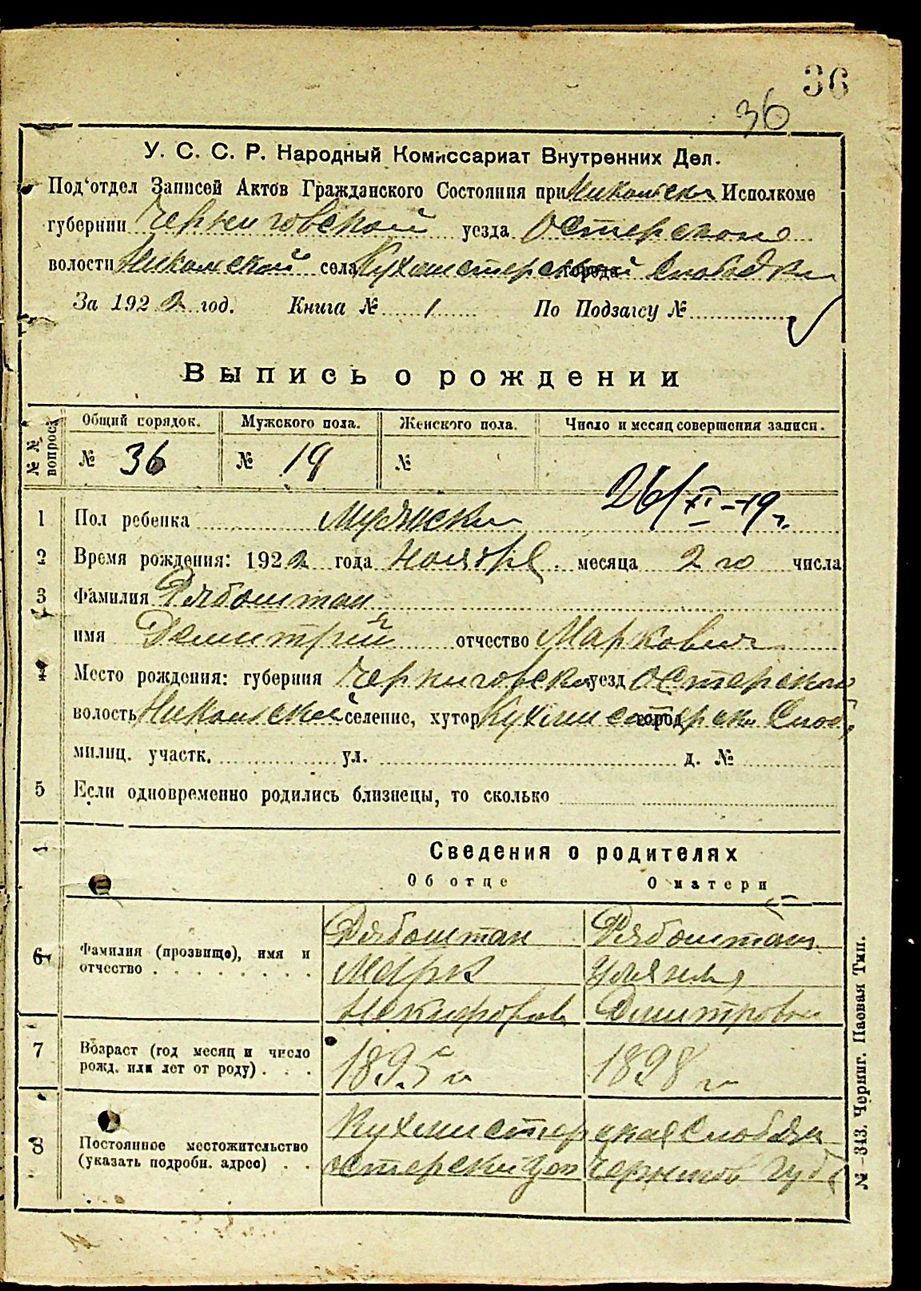 36
36
У. С. С. Р. Народный Комиссариат Внутренних Дел.
Под'отдел Записей Актов Гражданского Состояния при Никольск Исполкоме
губернии Черниговской уезда Остерского
волости Никольской села Кухмистерской города Слободки
За 1922 год. Книга № 1 По Подзагсу №
Выпись о рождении
№№ вопроса Общий порядок. Мужского пола. Женского пола. Число и месяц совершения записи.
№ 36 № 19 № 26/XI-19г.
1 Пол ребенка Мужски
2 Время рождения: 1922 года Ноября месяца 2 го числа
3 Фамилия Рябоштан
имя Демитрий отчество Маркович
4 Место рождения: губерния Черниговская уезд Остерский
волость Никольской селение, хутор Кухмистерски город Слоб,
милиц. участк. ул. д. №
5 Если одновременно родились близнецы, то сколько
Сведения о родителях
Об отце О матери
6 Фамилия (прозвище), имя и отчество
Рябоштан Рябоштан
Марк Уляна
Дмитровна
7 Возраст (год месяц и число рожд. или лет от роду)
1895 г 1898 г
8 Постоянное местожительство (указать подробн. адрес)
Кухмистерская Слобдка
Остерский уез Чернигов губ
№ -343. Черниг. Паевая Тип.